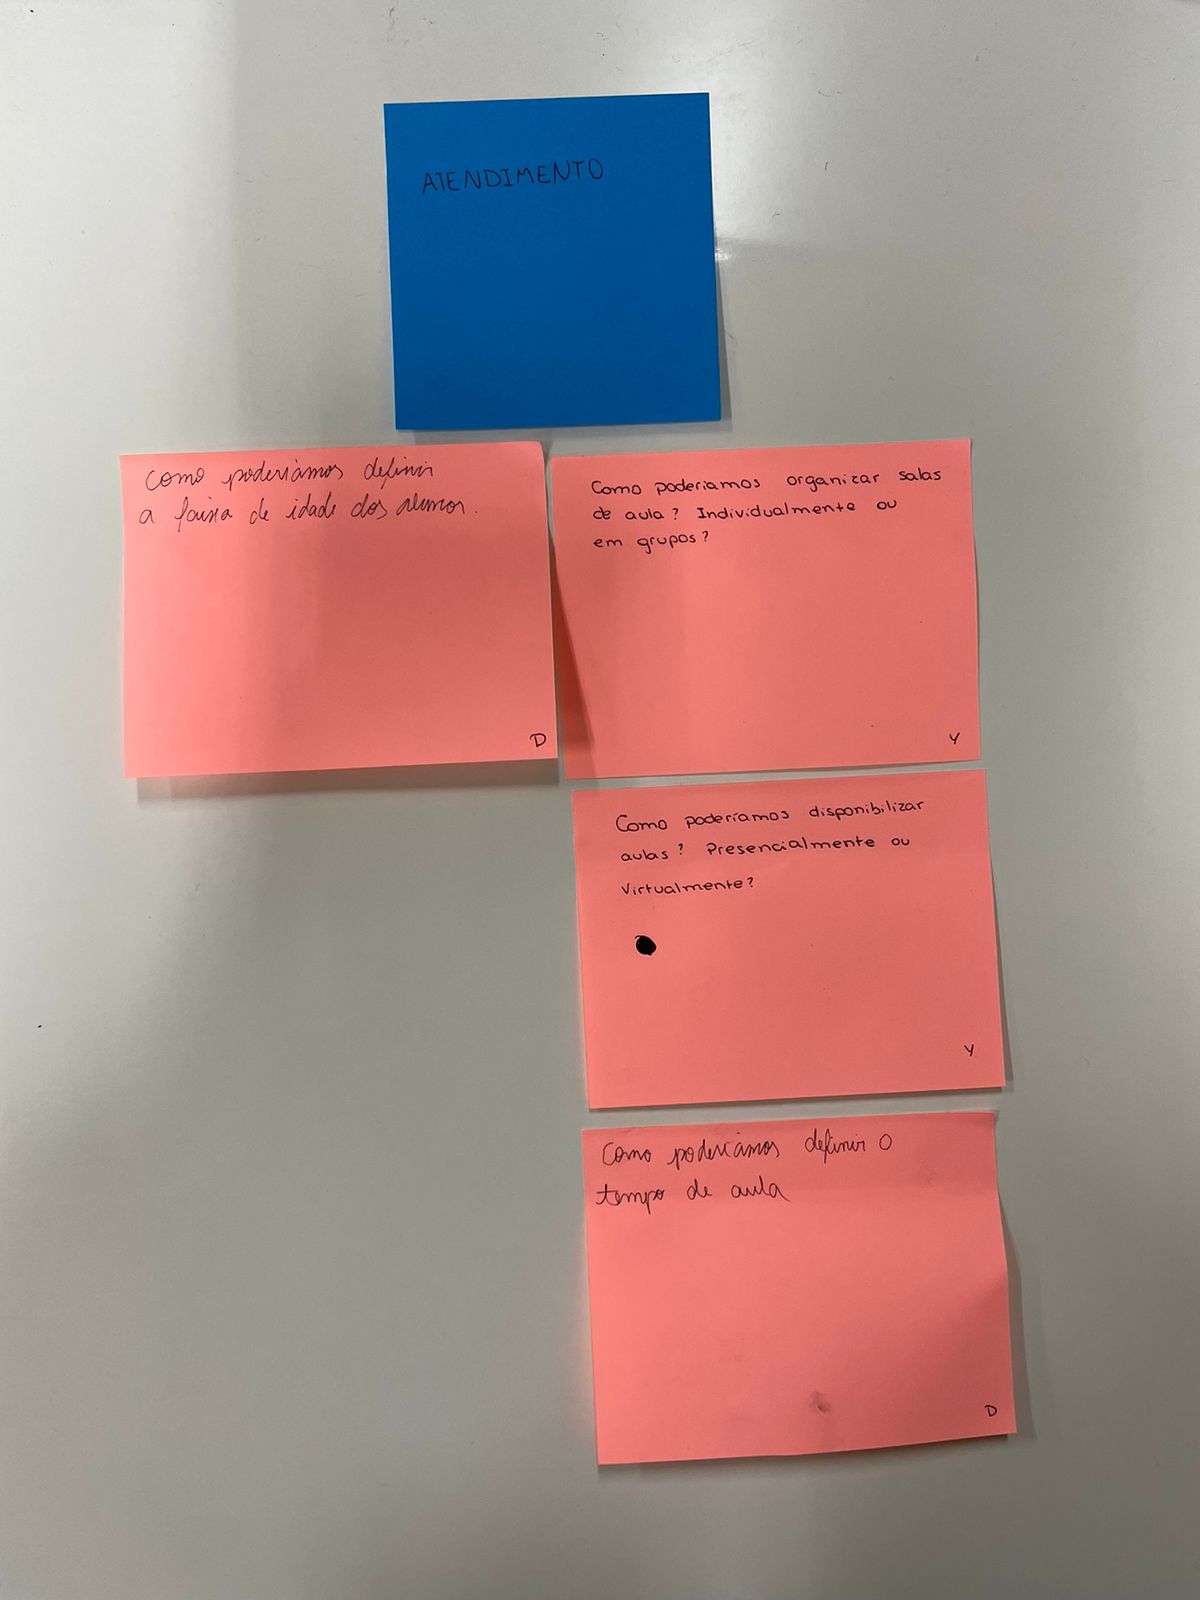 ATENDIMENTO
como poderiámos definir
a faixa de idade dos alunos.
D
Como poderiamos organizar salas
de aula? Individualmente ou
em grupos?
Y
Como poderíamos disponibilizar
aulas? Presencialmente ou
Virtualmente?
Y
Como poderiámos definir o
tempo de aula
D